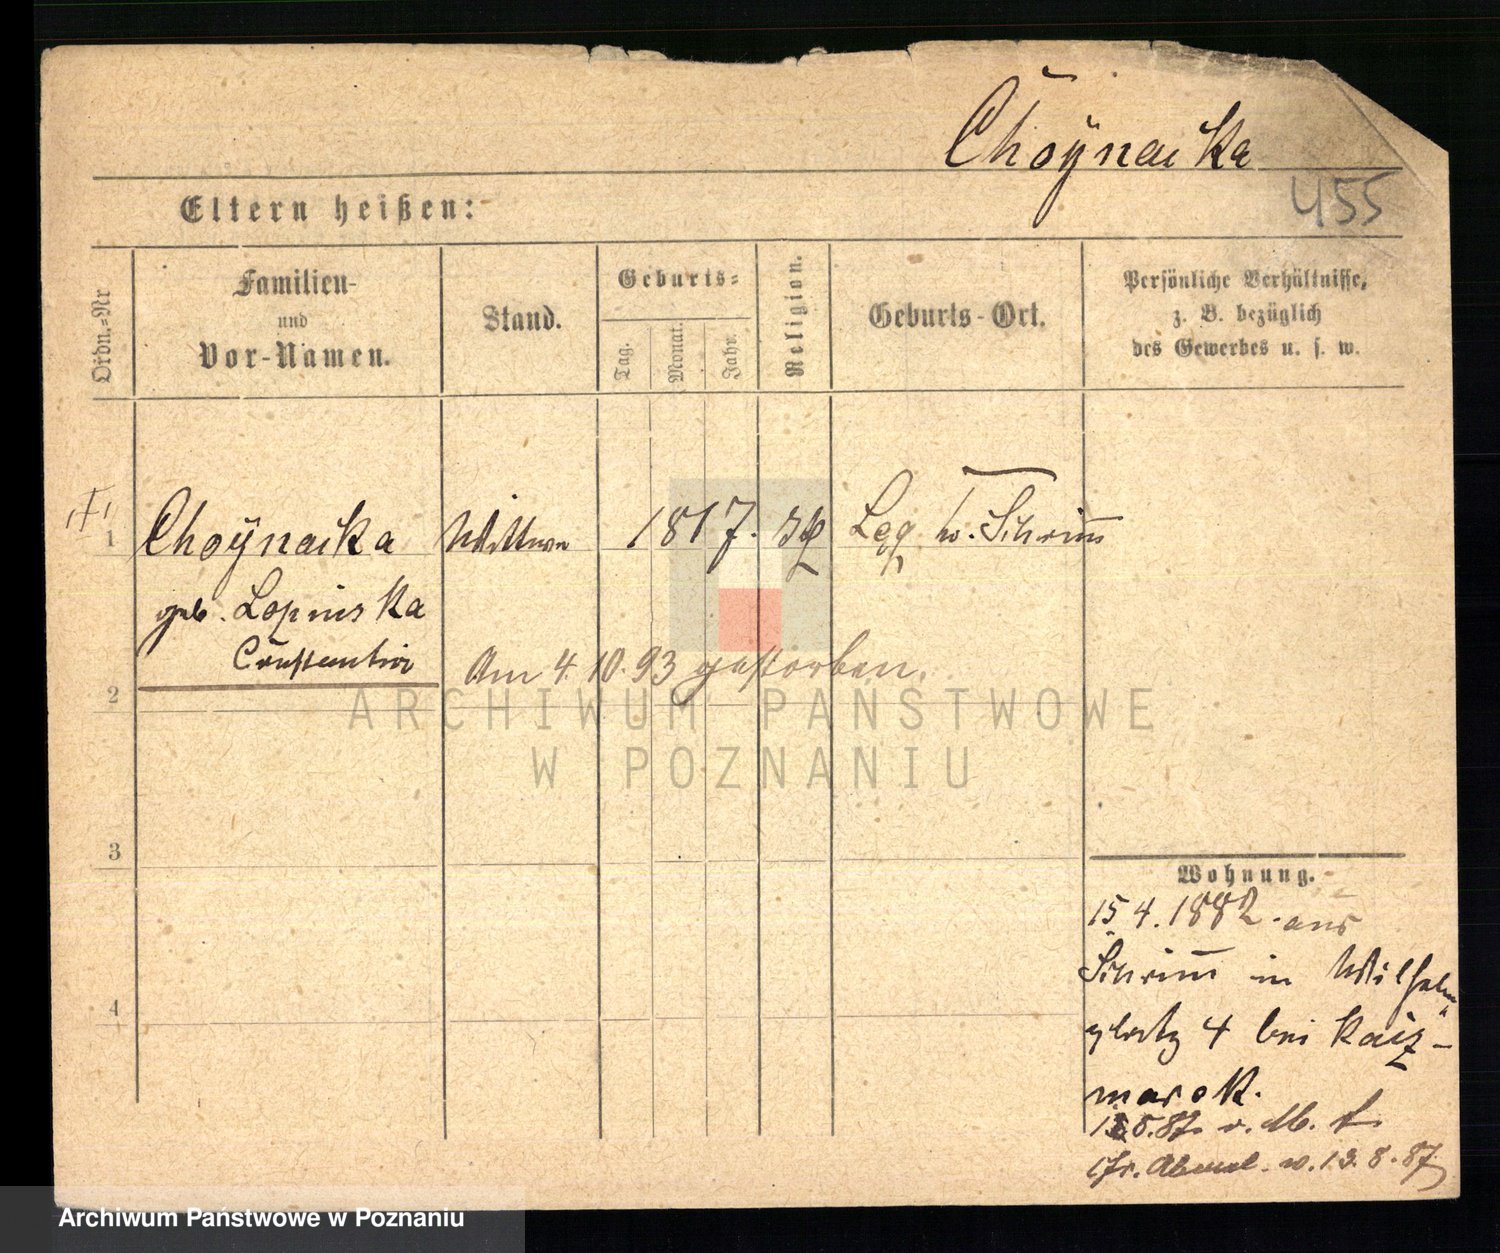 Choÿnacka
455
Eltern heißen:
Ordn.-Nr
Familien-
und
Vor-Namen.
Stand.
Geburts-
Tag.
Monat.
Jahr.
Religion.
Geburts-Ort.
Persönliche Verhältnisse,
z. B. bezüglich
des Gewerbes u. s. w.
1
Choÿnacka Wittwe 1817. Schrimm
geb. Lopinska
Am 4. 10. 93 gestorben.
2
ARCHIWUM PAŃSTWOWE
W POZNANIU
3
Wohnung.
15. 4. 1882. aus
Schrimm in Wilhelm
platz 4 bei Kacz-
marek.
5.87. v.
v. 13. 8. 87
4
Archiwum Państwowe w Poznaniu